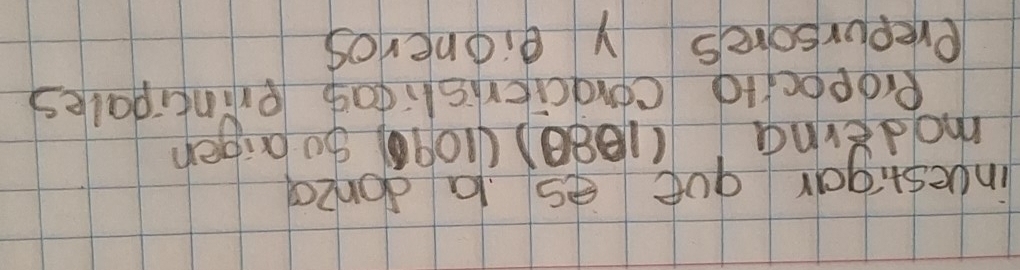 investigar que es la danza
moderna (1080) (1090) su origen
Propocito caracteristicas principales
Prepursores y Pioneros